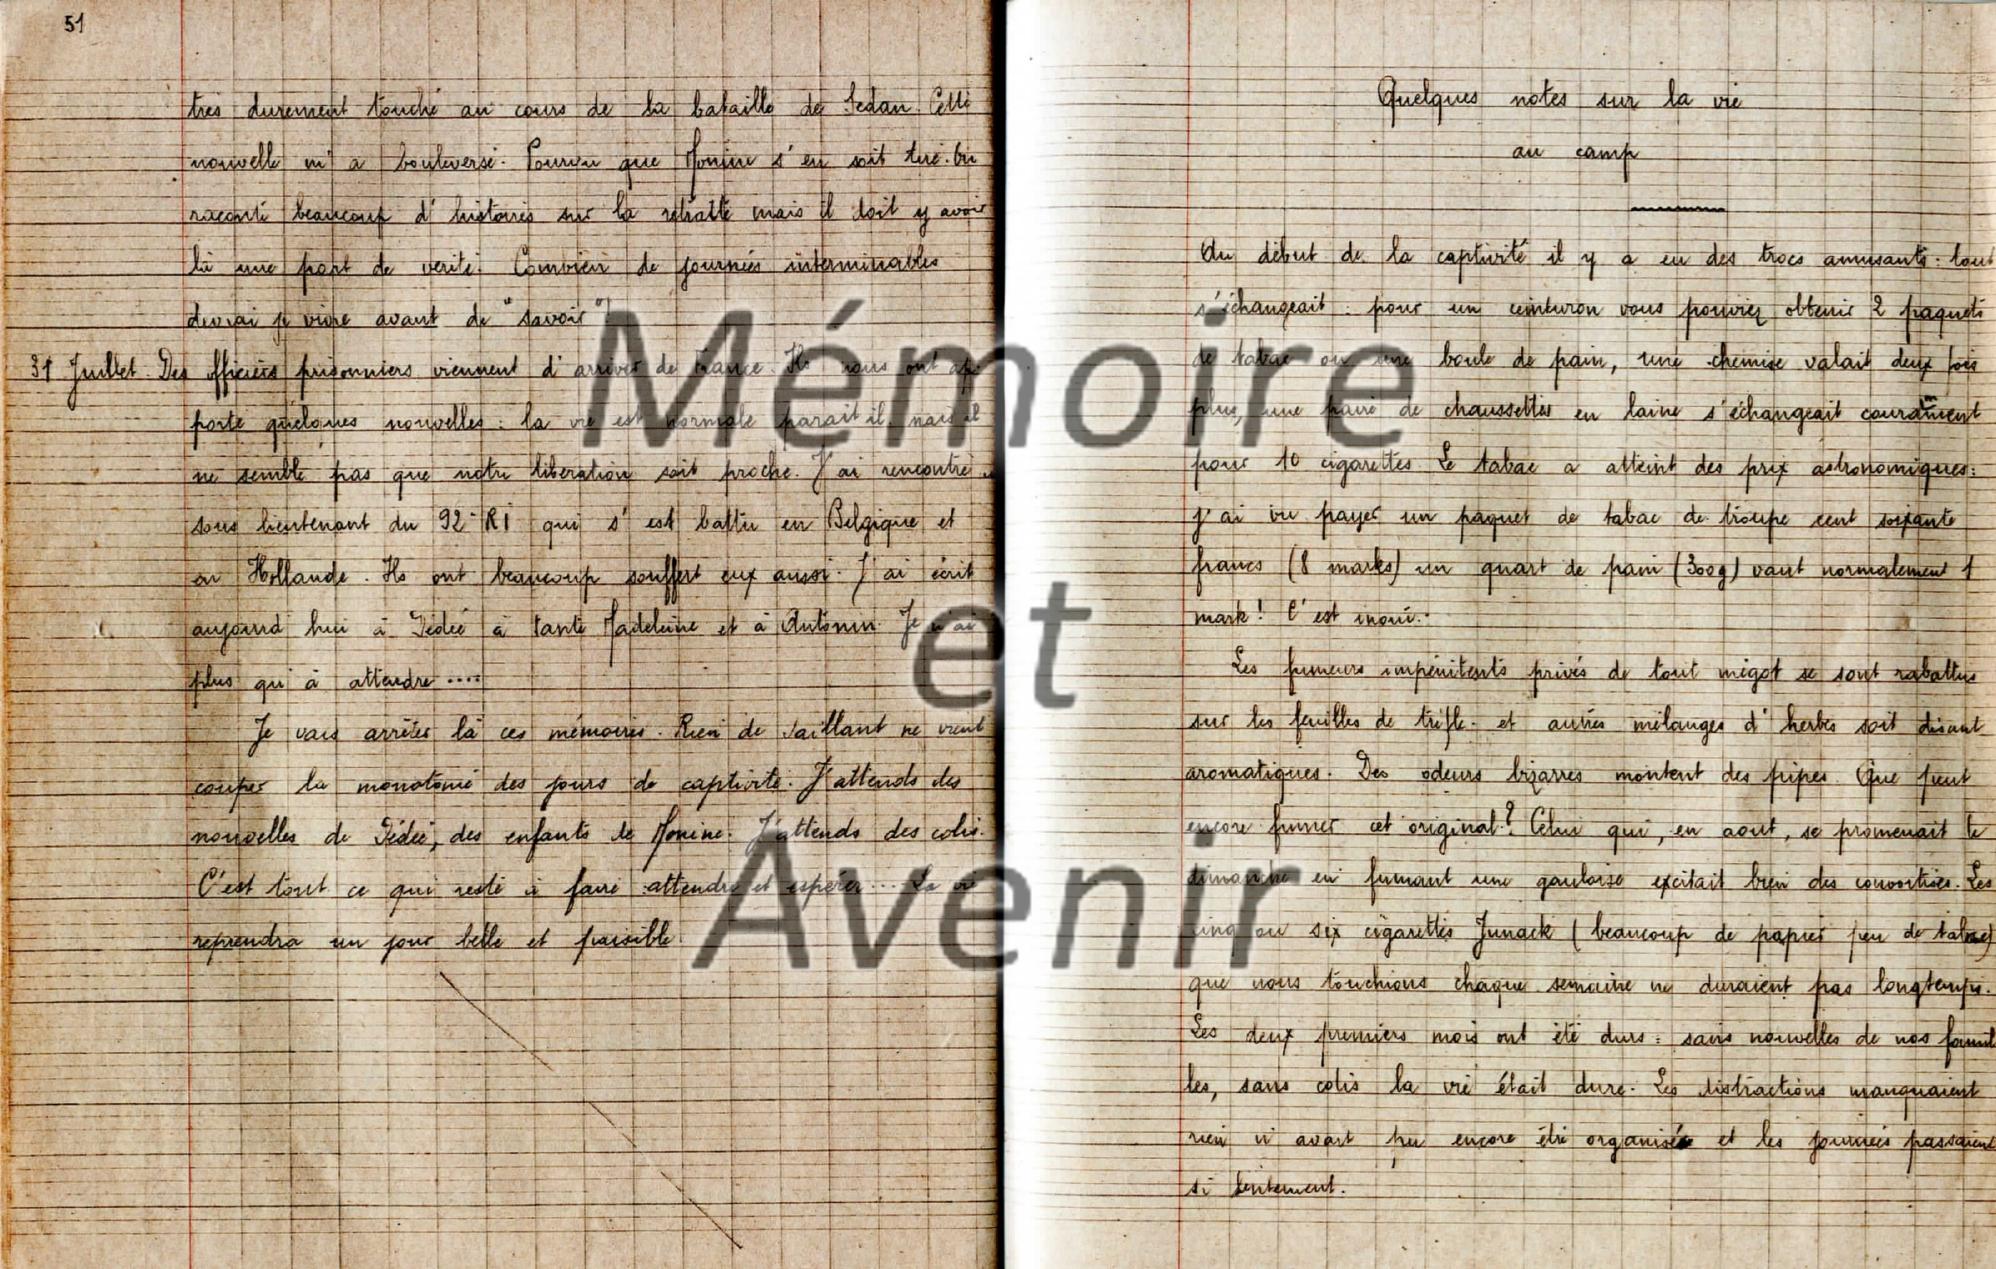 51
très durement touché au cours de la bataille de Sedan. Cette
nouvelle m'a bouleversé. Pourvu que Monine s'en soit tiré. On
raconte beaucoup d'histoires sur la retraite mais il doit y avoir
là une part de verité. Combien de journées interminables
devrai je vivre avant de "savoir"!
31 Juillet. Des officiers prisonniers viennent d'arriver de France. Ils nous ont ap
porté quelques nouvelles : la vie est normale parait il, mais il
ne semble pas que notre libération soit proche. J'ai rencontré un
sous lieutenant du 92e RI qui s'est battu en Belgique et
en Hollande. Ils ont beaucoup souffert eux aussi. J'ai écrit
aujourd'hui à Dédée à tante Madeleine et à Antonin. Je n'ai
plus qu'à attendre ....
Je vais arrêter là ces mémoires. Rien de saillant ne vient
couper la monotonie des jours de captivité. J'attends des
nouvelles de Dédée, des enfants de Monine. J'attends des colis.
C'est tout ce qui reste à faire attendre et espérer .... La vie
reprendra un jour belle et paisible
Quelques notes sur la vie
au camp
Au début de la captivité il y a eu des trocs amusants : tout
s'échangeait : pour un ceinturon vous pouviez obtenir 2 paquets
de tabac ou une boule de pain, une chemise valait deux fois
plus, une paire de chaussettes en laine s'échangeait couramment
pour 10 cigarettes. Le tabac a atteint des prix astronomiques :
j'ai vu payer un paquet de tabac de troupe cent soixante
francs (8 marks) un quart de pain (300g) vaut normalement 1
mark! C'est inouï.
Les fumeurs impénitents privés de tout mégot se sont rabattus
sur les feuilles de trèfle et autres mélanges d'herbes soit disant
aromatiques. Des odeurs bizarres montent des pipes. Que peut
encore fumer cet original? Celui qui, en aout, se promenait le
dimanche en fumant une gauloise excitait bien des convoitises. Les
cinq ou six cigarettes Junack (beaucoup de papier peu de tabac)
que nous touchions chaque semaine ne duraient pas longtemps.
Les deux premiers mois ont été durs : sans nouvelles de nos famil
les, sans colis la vie était dure. Les distractions manquaient
rien n'avait pu encore être organisé et les journées passaient
si lentement.
Mémoire
et
Avenir